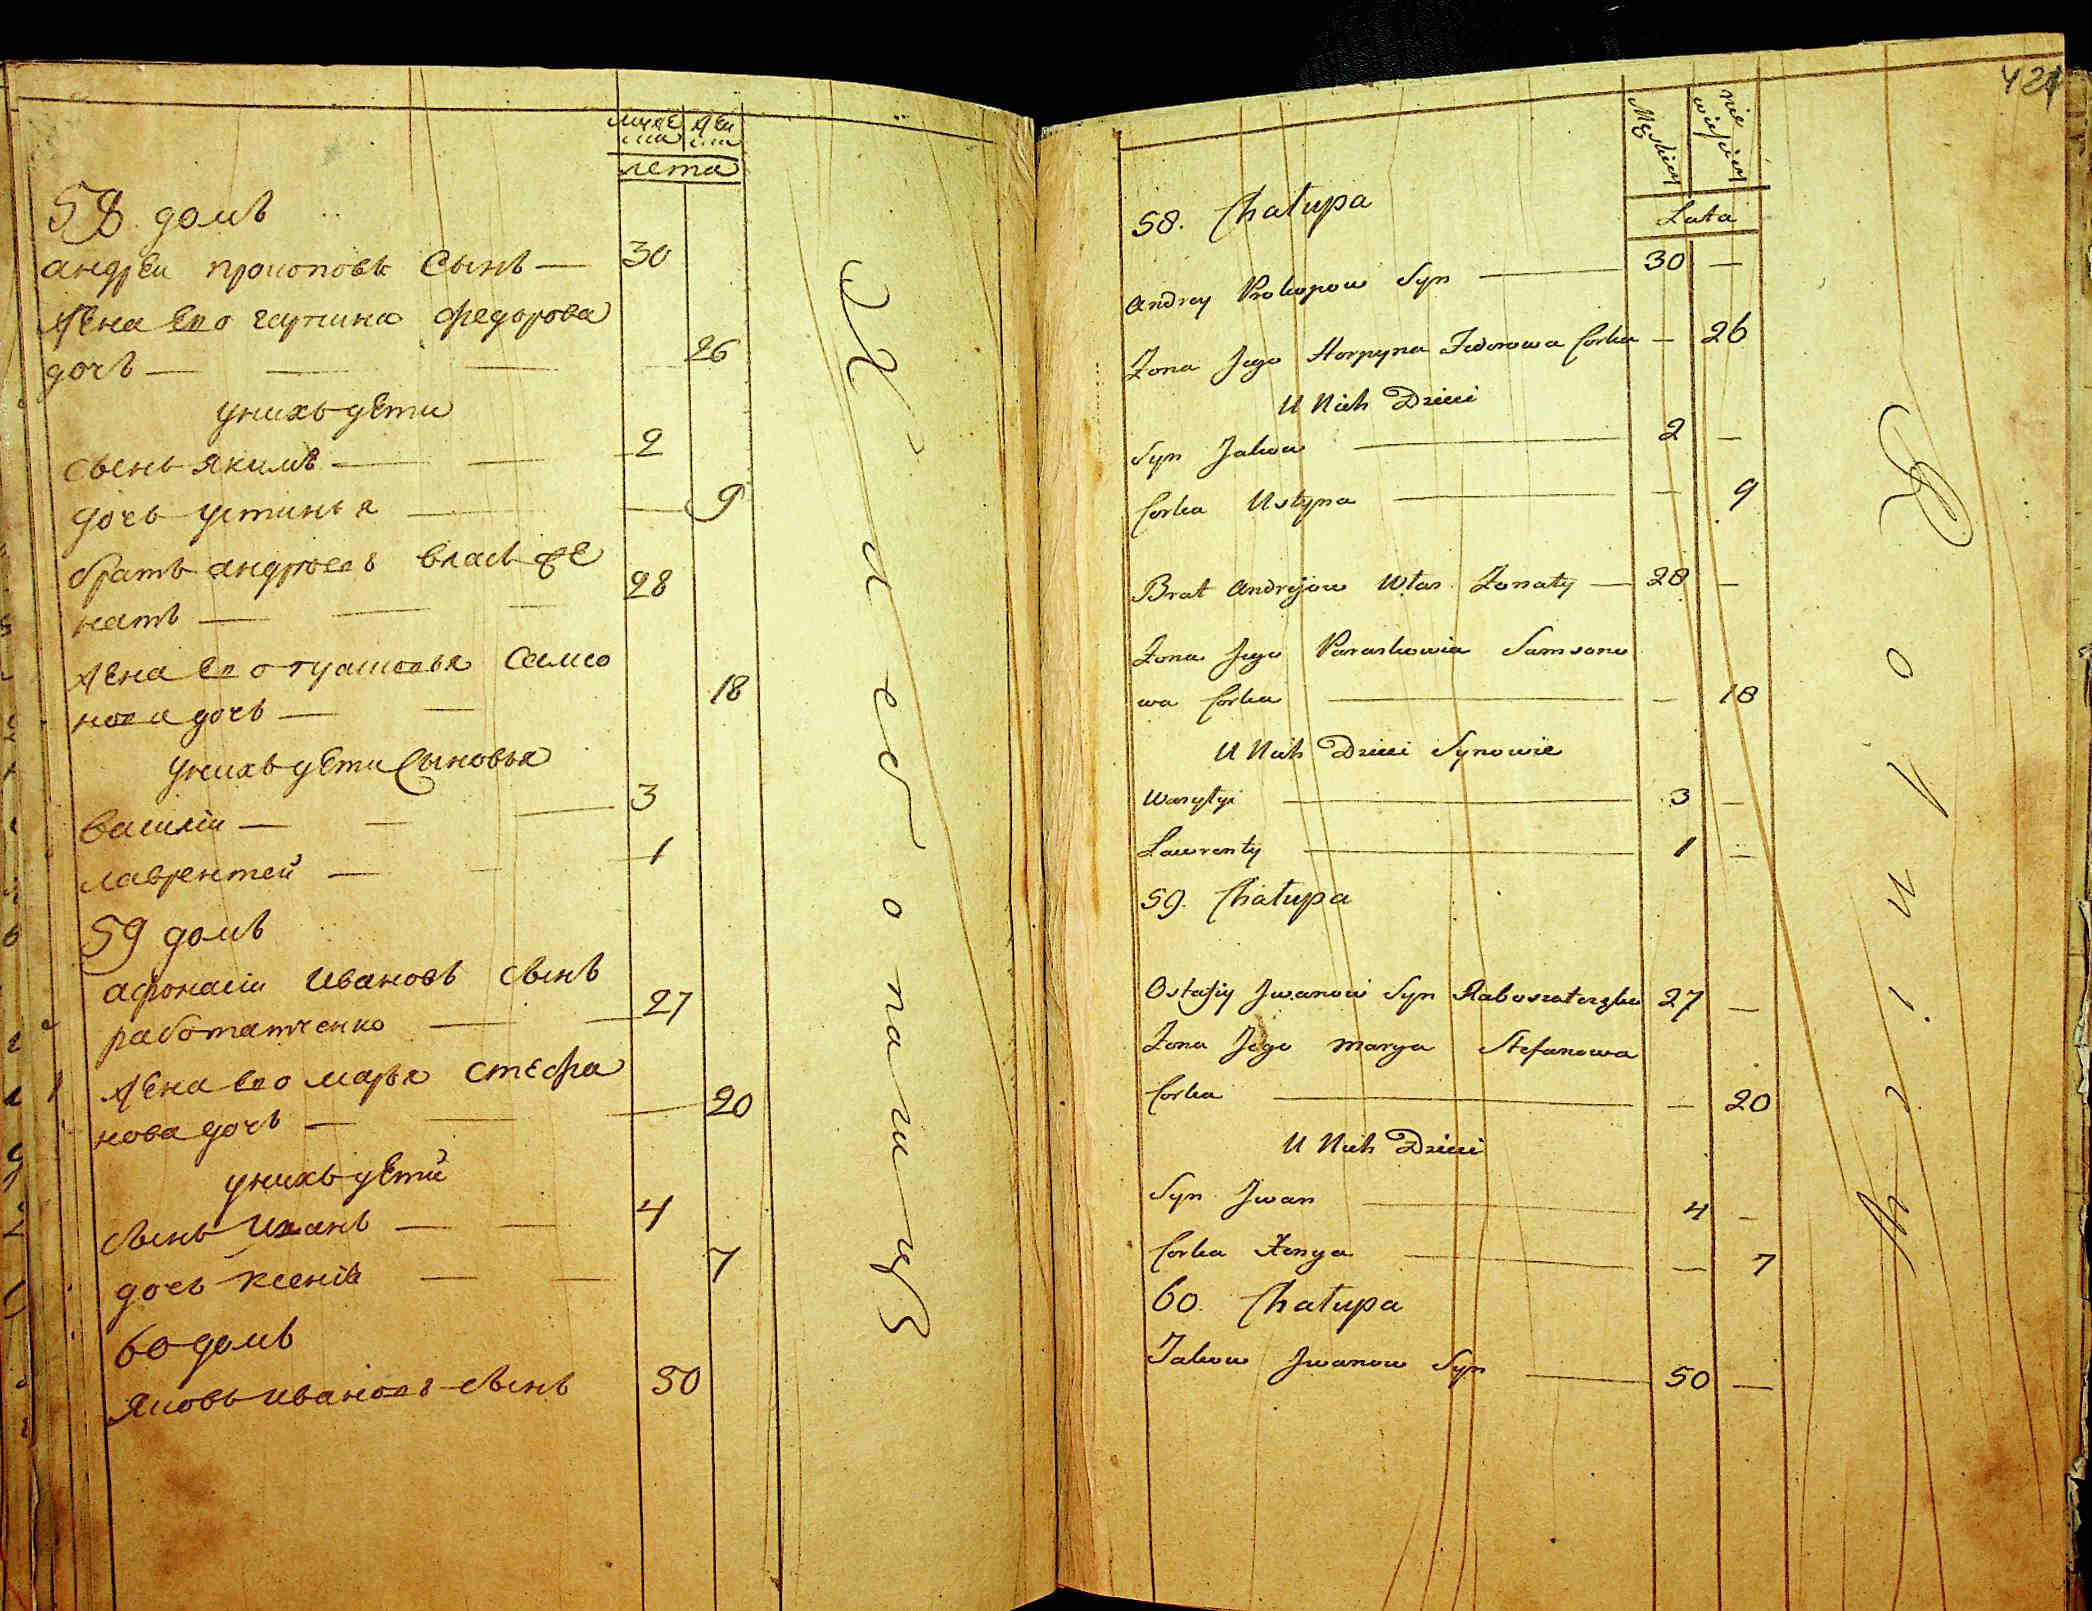 муже ска
жен ска
лета
58 домъ
андреи прокоповъ сынъ — 30
жена ево гарпина федорова
дочъ — 26
унихъ дети
сынъ якимъ — 2
дочь устинья — 9
братъ андреевъ власъ же
натъ — 28
жена ево
нова дочь — 18
унихъ дети сыновья
василіи — 3
лаврентей — 1
59 домъ
афонасіи ивановъ сынъ
работатченко — 27
жена ево марья стефа
нова дочъ — 20
унихъ дети
сынъ иванъ — 4
дочь ксенія — 7
60 домъ
яковъ ивановъ сынъ 50
421
Męskiey
nie wieśćiey
Lata
58. Chałupa
Andrey Prokopow Syn — 30 —
Żona Jego Horpyna Fedorowa Corka — 26
U Nich Dzieci
Syn Jakow — 2 —
Corka Ustyna — — 9
Brat Andrejow Własz Żonaty — 28 —
Żona Jego Paraskowia Samsono
wa Corka — — 18
U Nich Dzieci Synowie
Wasylyi — 3 —
Lawrenty — 1 —
59. Chałupa
Ostafiy Jwanow Syn 27 —
Żona Jego Marya Stefanowa
Corka — — 20
U Nich Dzieci
Syn Jwan — 4 —
Corka Xenya — — 7
60. Chałupa
Jakow Jwanow Syn — 50 —